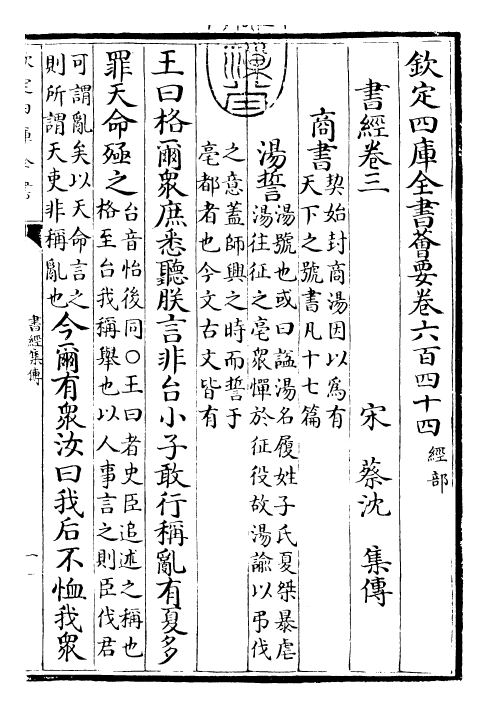 欽定四庫全書薈要卷六百四十四 經部
書經卷三
宋 蔡沈 集傳
商書
契始封商湯因以為有
天下之號書凡十七篇
湯誓
湯號也或曰諡湯名履姓子氏夏桀暴虐
湯往征之亳衆憚於征役故湯諭以弔伐
之意蓋師興之時而誓于
亳都者也今文古文皆有
王曰格爾衆庶悉聽朕言非台小子敢行稱亂有夏多
罪天命殛之
台音怡後同○王曰者史臣追述之稱也
格至台我稱舉也以人事言之則臣伐君
可謂亂矣以天命言之
則所謂天吏非稱亂也
今爾有衆汝曰我后不恤我衆
書經集傳
一